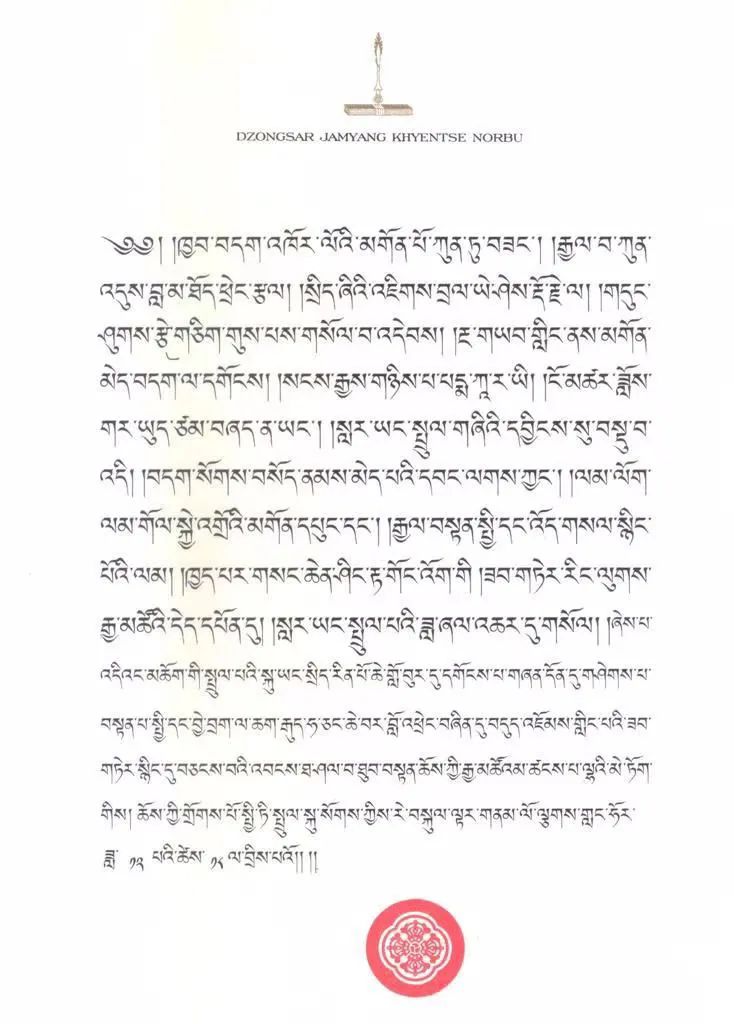 DZONGSAR JAMYANG KHYENTSE NORBU
༄༅། །ཁྱབ་བདག་འཁོར་ལོའི་མགོན་པོ་ཀུན་ཏུ་བཟང་། །རྒྱལ་བ་ཀུན་
འདུས་བླ་མ་ཐོད་ཕྲེང་རྩལ། །སྲིད་ཞིའི་འཇིགས་བྲལ་ཡེ་ཤེས་རྡོ་རྗེ་ལ། །གདུང་
ཤུགས་རྩེ་གཅིག་གུས་པས་གསོལ་བ་འདེབས། །རྔ་གཡབ་གླིང་ནས་མགོན་
མེད་བདག་ལ་དགོངས། །སངས་རྒྱས་གཉིས་པ་པདྨ་ཀཱ་ར་ཡི། །ངོ་མཚར་ཟློས་
གར་ཡུད་ཙམ་བཞད་ན་ཡང་། །སླར་ཡང་སྤྲུལ་གཞིའི་དབྱིངས་སུ་བསྡུ་བ་
འདི། །བདག་སོགས་བསོད་ནམས་མེད་པའི་དབང་ལགས་ཀྱང་། །ལམ་ལོག་
ལམ་གོལ་སྐྱེ་འགྲོའི་མགོན་དཔུང་དང་། །རྒྱལ་བསྟན་སྤྱི་དང་འོད་གསལ་སྙིང་
པོའི་ལམ། །ཁྱད་པར་གསང་ཆེན་ཤིང་རྟ་གོང་འོག་གི །ཟབ་གཏེར་རིང་ལུགས་
རྒྱ་མཚོའི་དེད་དཔོན་དུ། །སླར་ཡང་སྤྲུལ་པའི་ཟླ་ཞལ་འཆར་དུ་གསོལ། །ཞེས་པ་
འདིའང་མཆོག་གི་སྤྲུལ་པའི་སྐུ་ཡང་སྲིད་རིན་པོ་ཆེ་གློ་བུར་དུ་དགོངས་པ་གཞན་དོན་དུ་གཤེགས་པ་
བསྟན་པ་སྤྱི་དང་བྱེ་བྲག་ལ་ཆག་རྒུད་ཧ་ཅང་ཆེ་བར་བློ་འཕྲེང་བཞིན་དུ་བདུད་འཇོམས་གླིང་པའི་ཟབ་
གཏེར་སྙིང་དུ་བཅངས་བའི་འབངས་ཐ་ཤལ་བ་ཐུབ་བསྟན་ཆོས་ཀྱི་རྒྱ་མཚོའམ་ཚངས་པ་ལྷའི་མེ་ཏོག་
གིས། ཆོས་ཀྱི་གྲོགས་པོ་སྤྱི་ཏི་སྤྲུལ་སྐུ་སོགས་ཀྱིས་རེ་བསྐུལ་ལྟར་གནམ་ལོ་ལྕགས་གླང་ཧོར་
ཟླ་ ༡༢ པའི་ཚེས་ ༡༤ ལ་བྲིས་པའོ།། །།